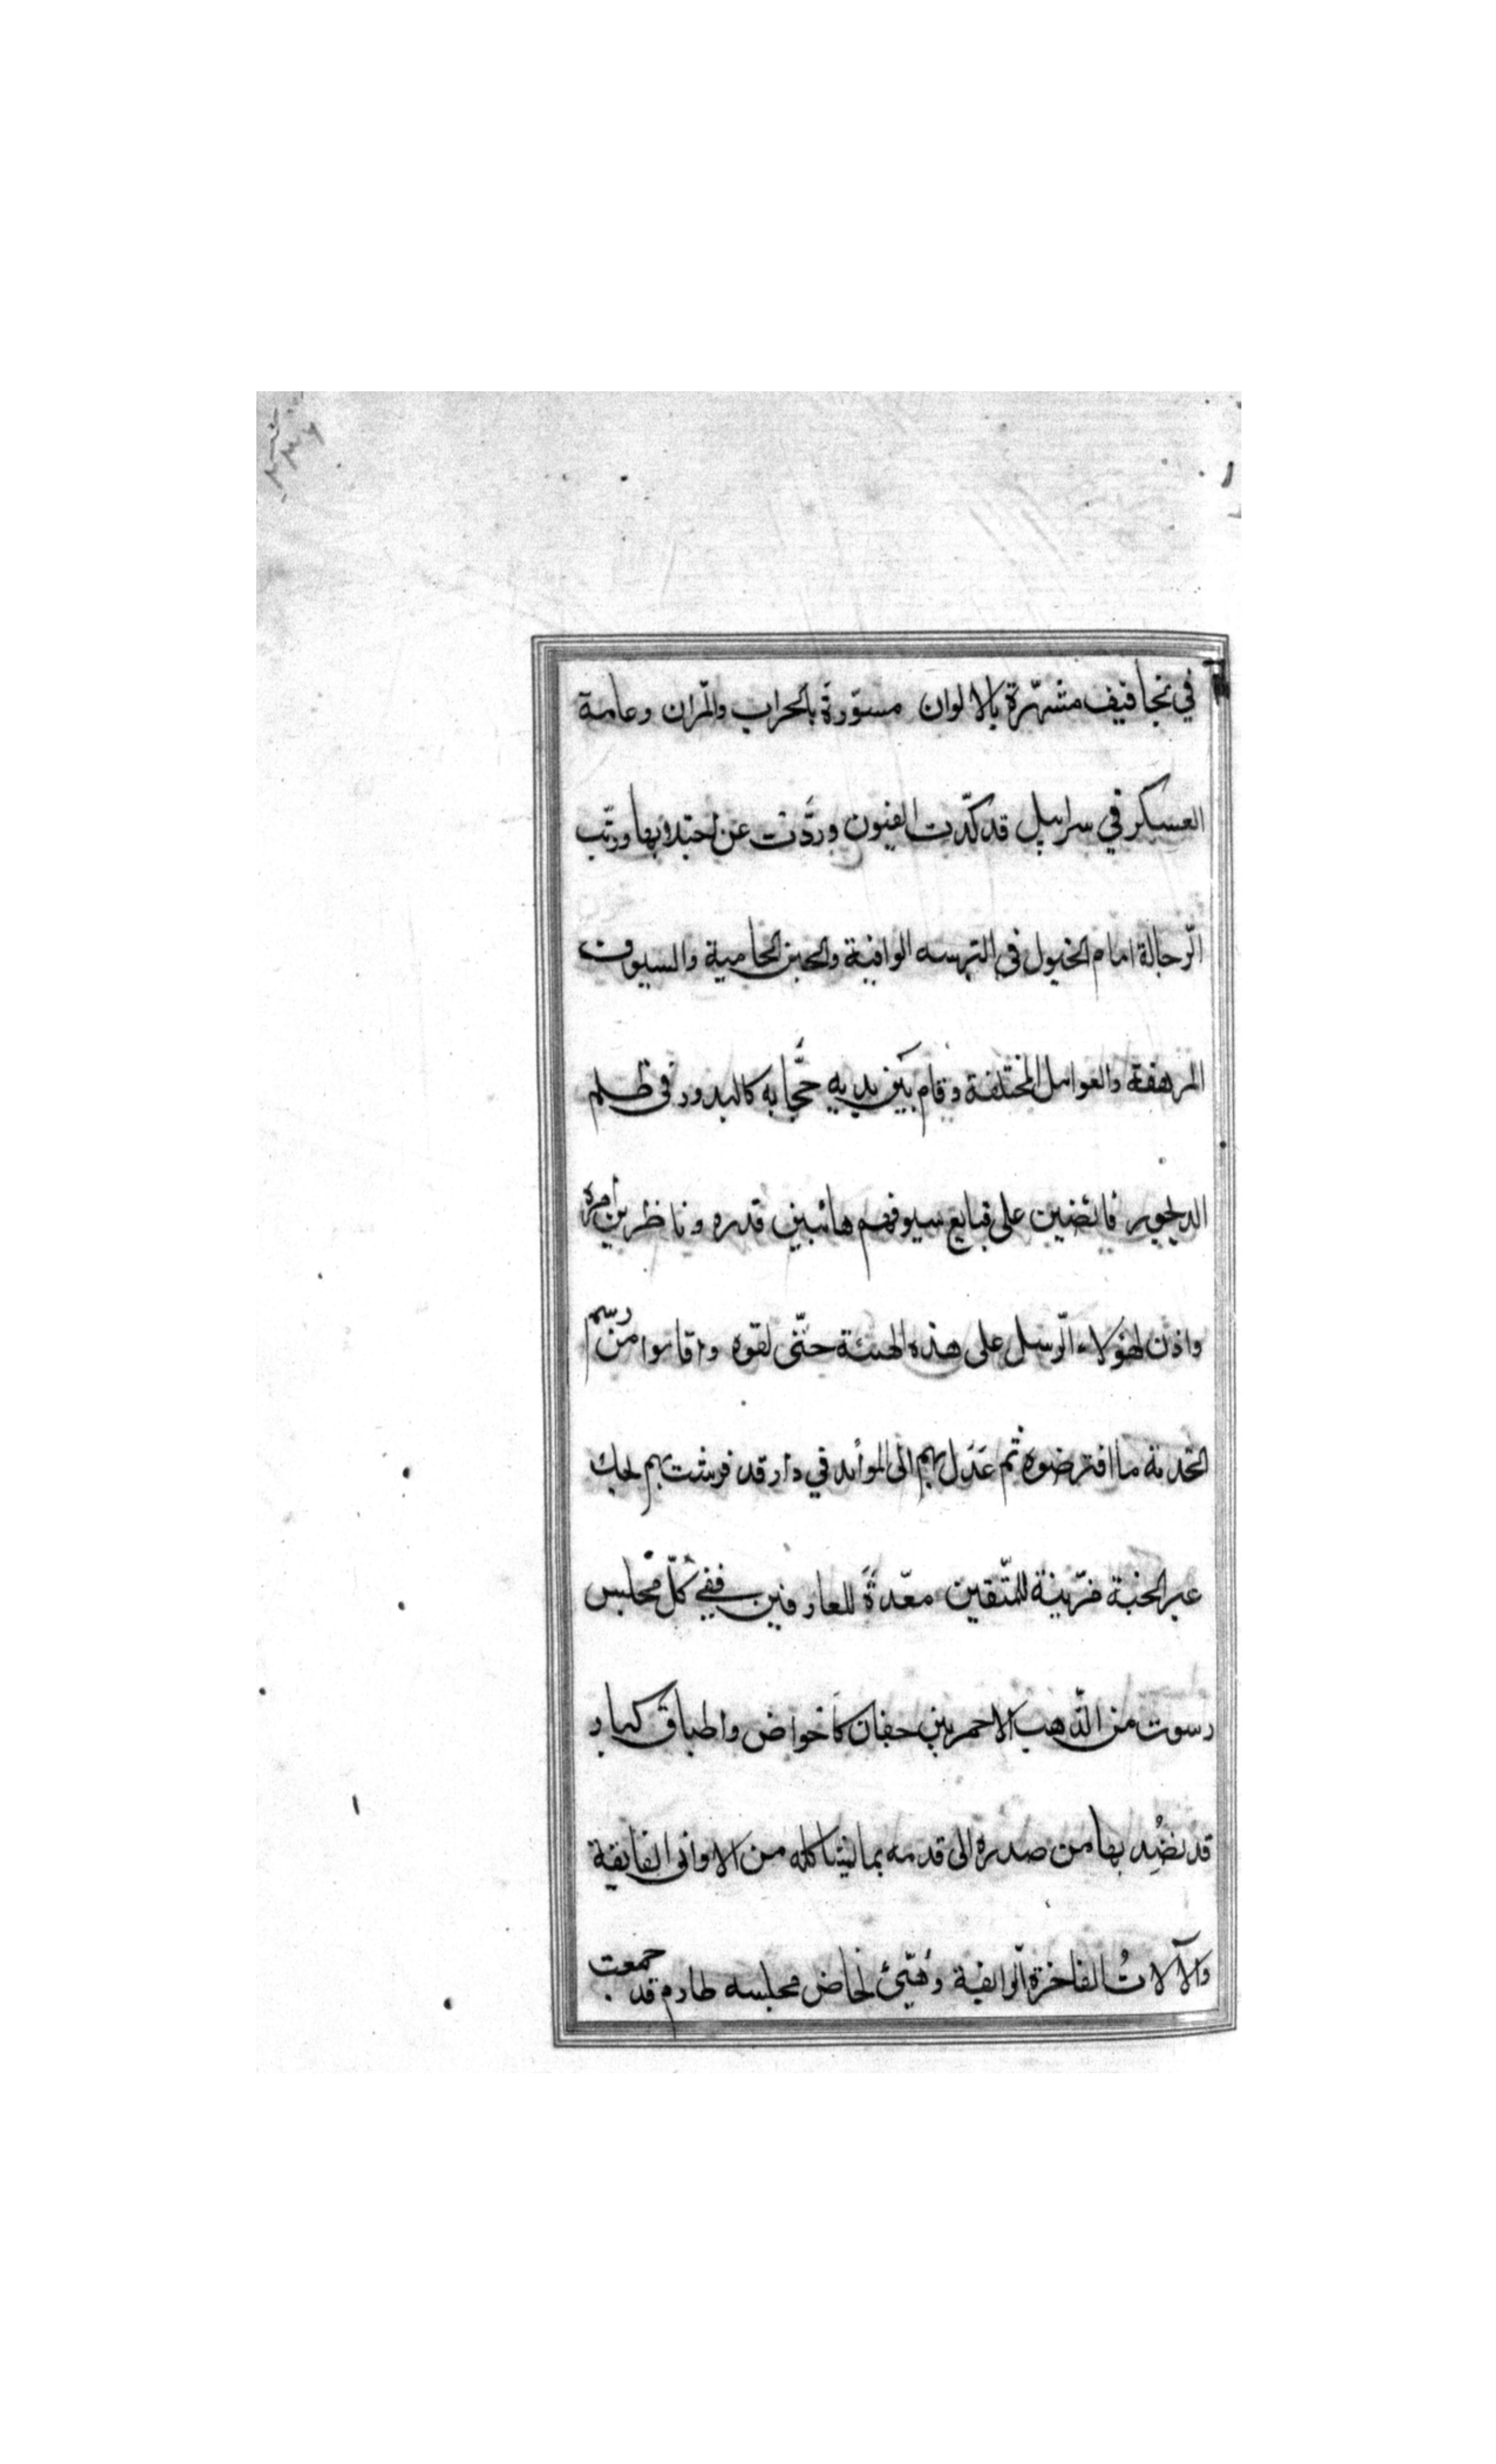 في تجافيف مشهّرة بالالوان مسوّرة بالحراب والمران وعامة
العسكر في سرابيل قد كدّت القيون وردّت عن اجتلابها ورتّب
الرّجالة امام الخيول في الترسه الواقية والجنن الحامية والسيوف
المرهفة والعوامل المختلفة وقام بين يديه حجّابه كالبدور في ظلم
الديجور قابضين على قبايع سيوفهم هائبين قدره وناظرين امره
واذن لهؤلاء الرّسل على هذه الهيئة حتّى لقوه واقاموا من رسم
الخدمة ما افترضوه ثم عدل بهم الى الموائد في دار قد فرشت بهم لحك
عبر الجنة مزينة للمتّقين معدّة للعارفين ففي كلّ مجلس
دسوت من الذّهب الاحمر بين جفان كاحواض واطباق كبار
قد نضد بها من صدره الى قدمه بما يشاكله من الاواني الفايقة
والآلات الفاخرة الرّايقة وهيّئ لخاص مجلسه طارم قد جمعت